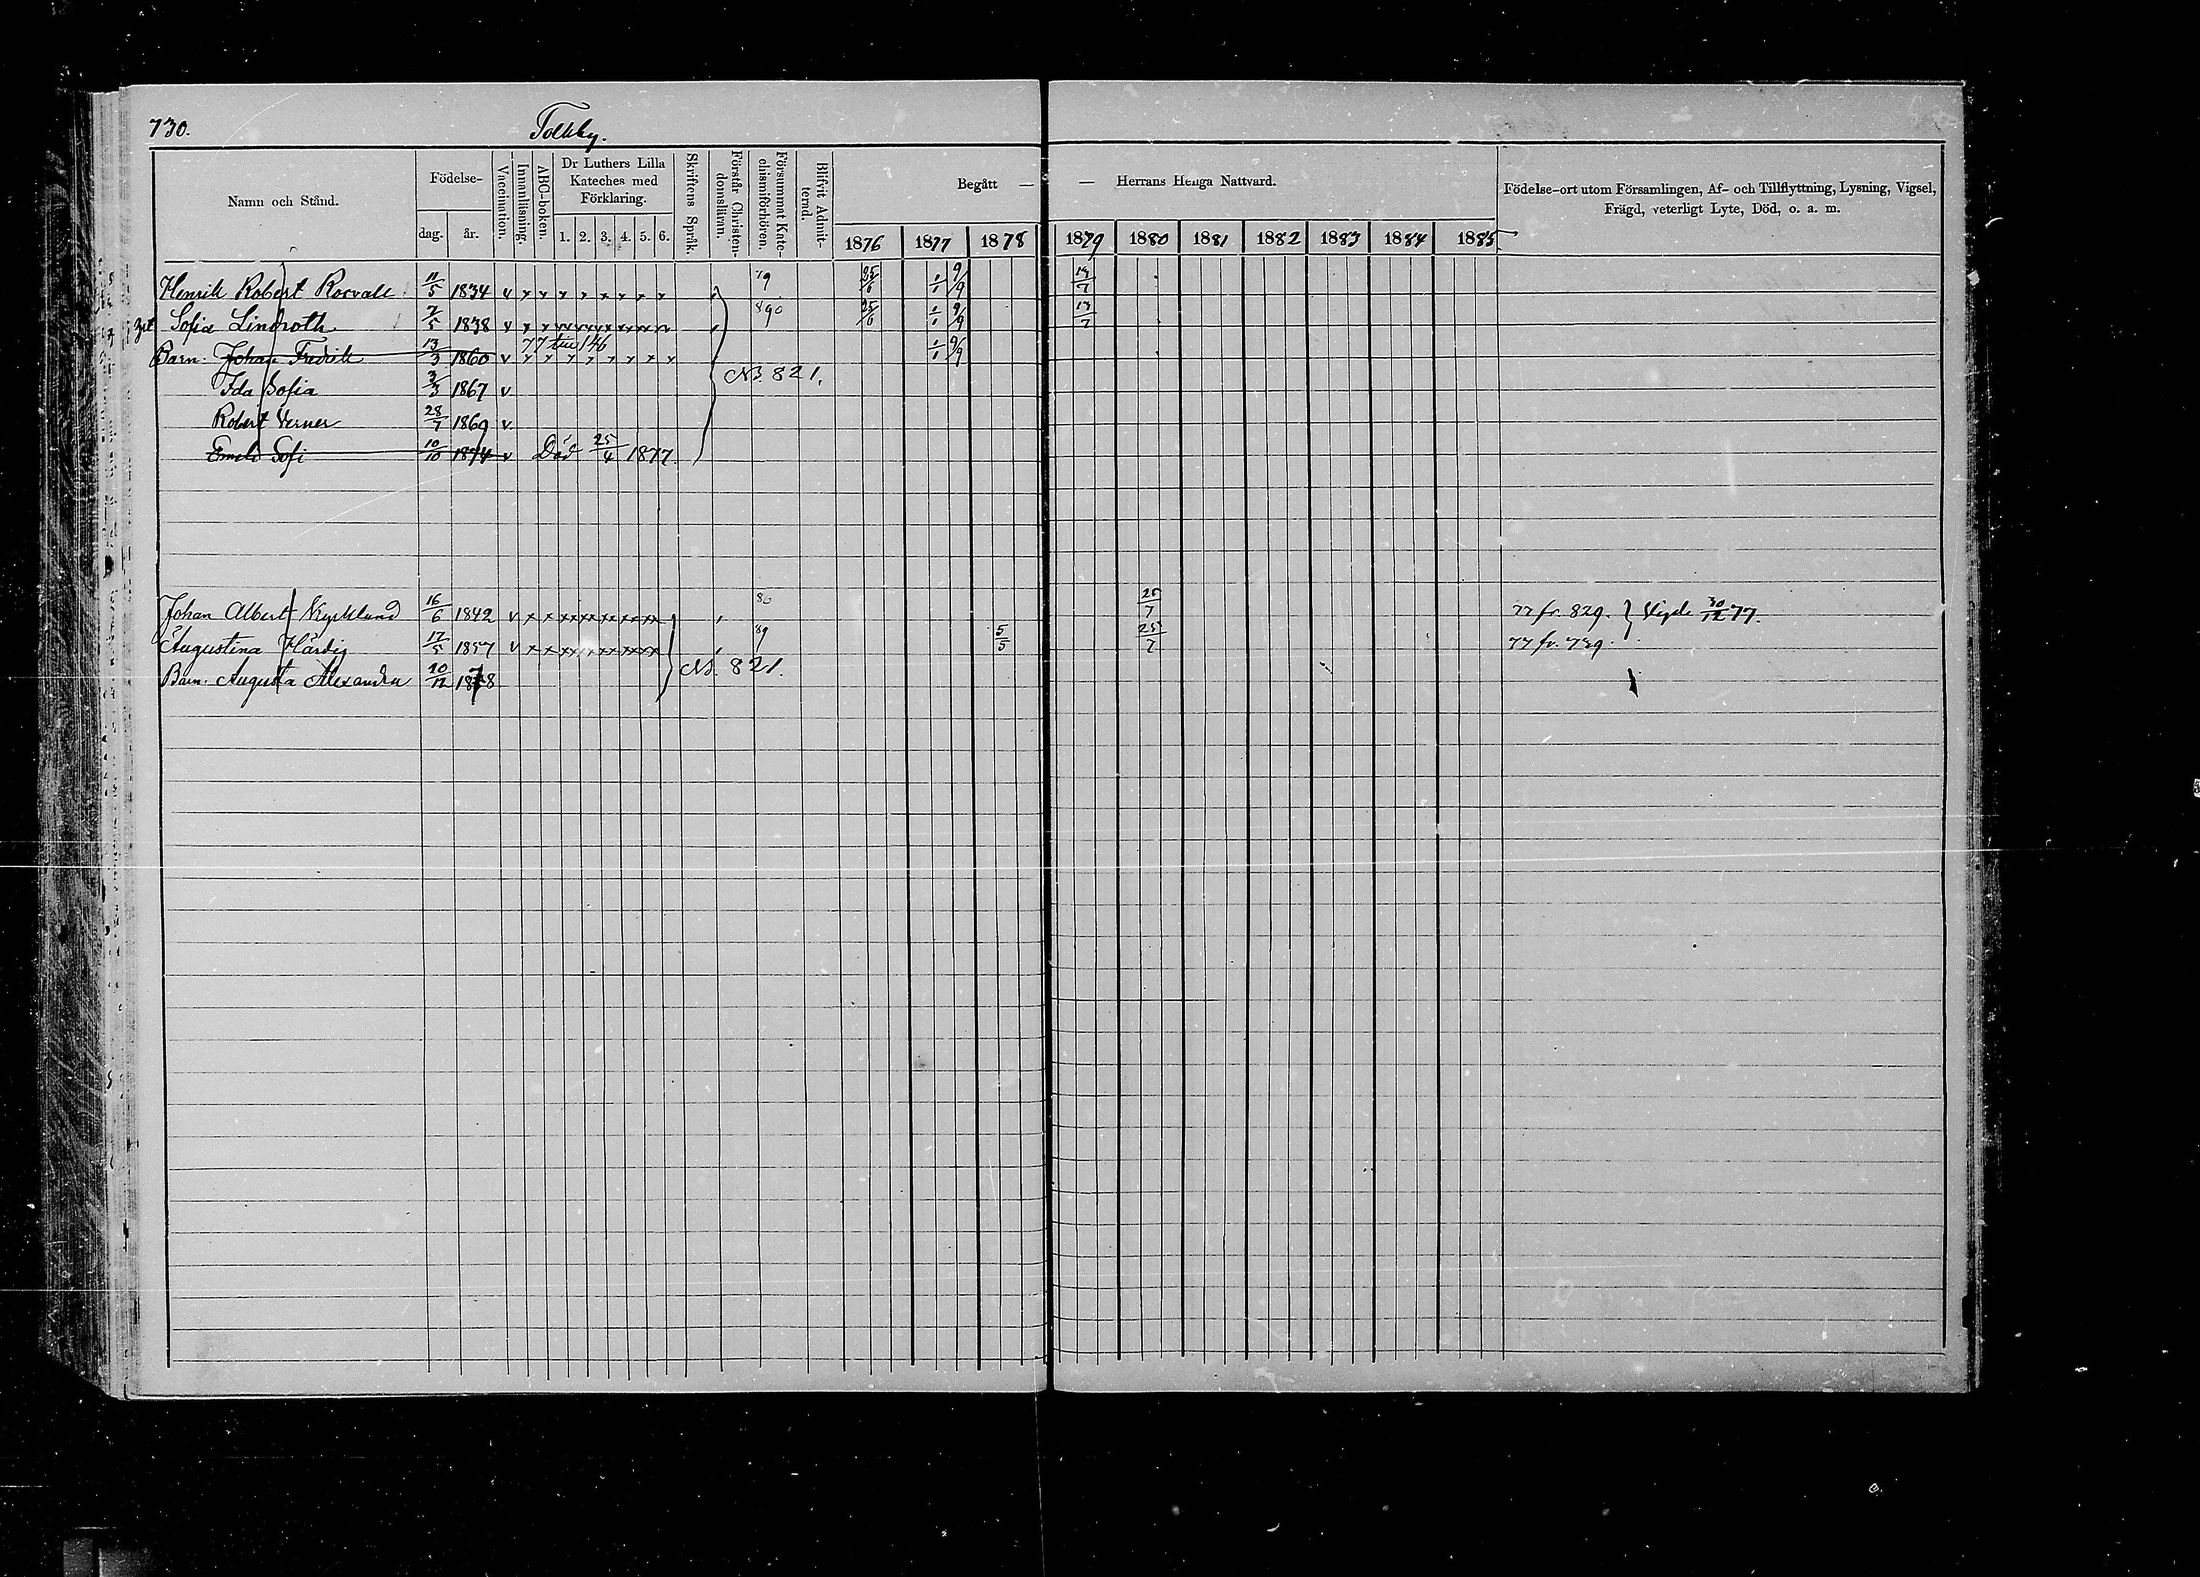 730.
Tolkby.
Namn och Stånd.
Födelse-
dag.
år.
Vaccination.
Innanläsning.
ABC-boken.
Dr Luthers Lilla
Kateches med
Förklaring.
1. 2. 3. 4. 5. 6.
Skriftens Språk.
Förstår Christen-
domsläran.
Försummat Kate-
chismiförhören.
Blifvit Admit-
terad.
Begått —
— Herrans Heliga Nattvard.
1876 1877 1878 1879 1880 1881 1882 1883 1884 1885
Födelse-ort utom Församlingen, Af- och Tillflyttning, Lysning, Vigsel,
Frägd, veterligt Lyte, Död, o. a. m.
Henrik Robert Rosvall 11/5 1834 v 79 25/6 1/1 9/9 13/7
Sofia Lindroth 7/5 1838 v 25/6 1/1 9/9 13/7
77 till 146
Barn. Johan Fredrik 13/3 1860 v 1/1 9/9
Ida Sofia 3/3 1867 v
N. 821.
Robert Verner 28/7 1869 v
Emeli Sofi 10/10 1874 v Död 25/4 1877.
Johan Albert Nyklund 16/6 1842 v 80 25/7 77 fr. 829. } Vigde 30/12 77.
Augustina Härdig 17/5 1857 v 79 5/5 25/7 77 fr. 739.
Barn. Augusta Alexandra 10/12 1878 N. 821.